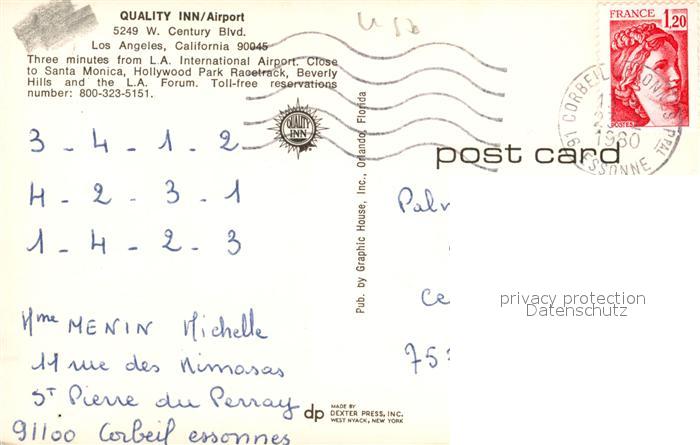 QUALITY INN/Airport
5249 W. Century Blvd.
Los Angeles, California 90045
Three minutes from L.A. International Airport. Close
to Santa Monica, Hollywood Park Racetrack, Beverly
Hills and the L.A. Forum. Toll-free reservations
number: 800-323-5151.
USA
FRANCE
1,20
POSTES
1980
91 ESSONNE
QUALITY
INN
post card
3 - 4 - 1 - 2
4 - 2 - 3 - 1
1 - 4 - 2 - 3
Pub. by Graphic House, Inc., Orlando, Florida
Palm
Ce
75
privacy protection
Datenschutz
Mme MENIN Michelle
11 rue des Mimosas
ST Pierre du Perray
91100 Corbeil essonnes
dp
MADE BY
DEXTER PRESS, INC.
WEST NYACK, NEW YORK